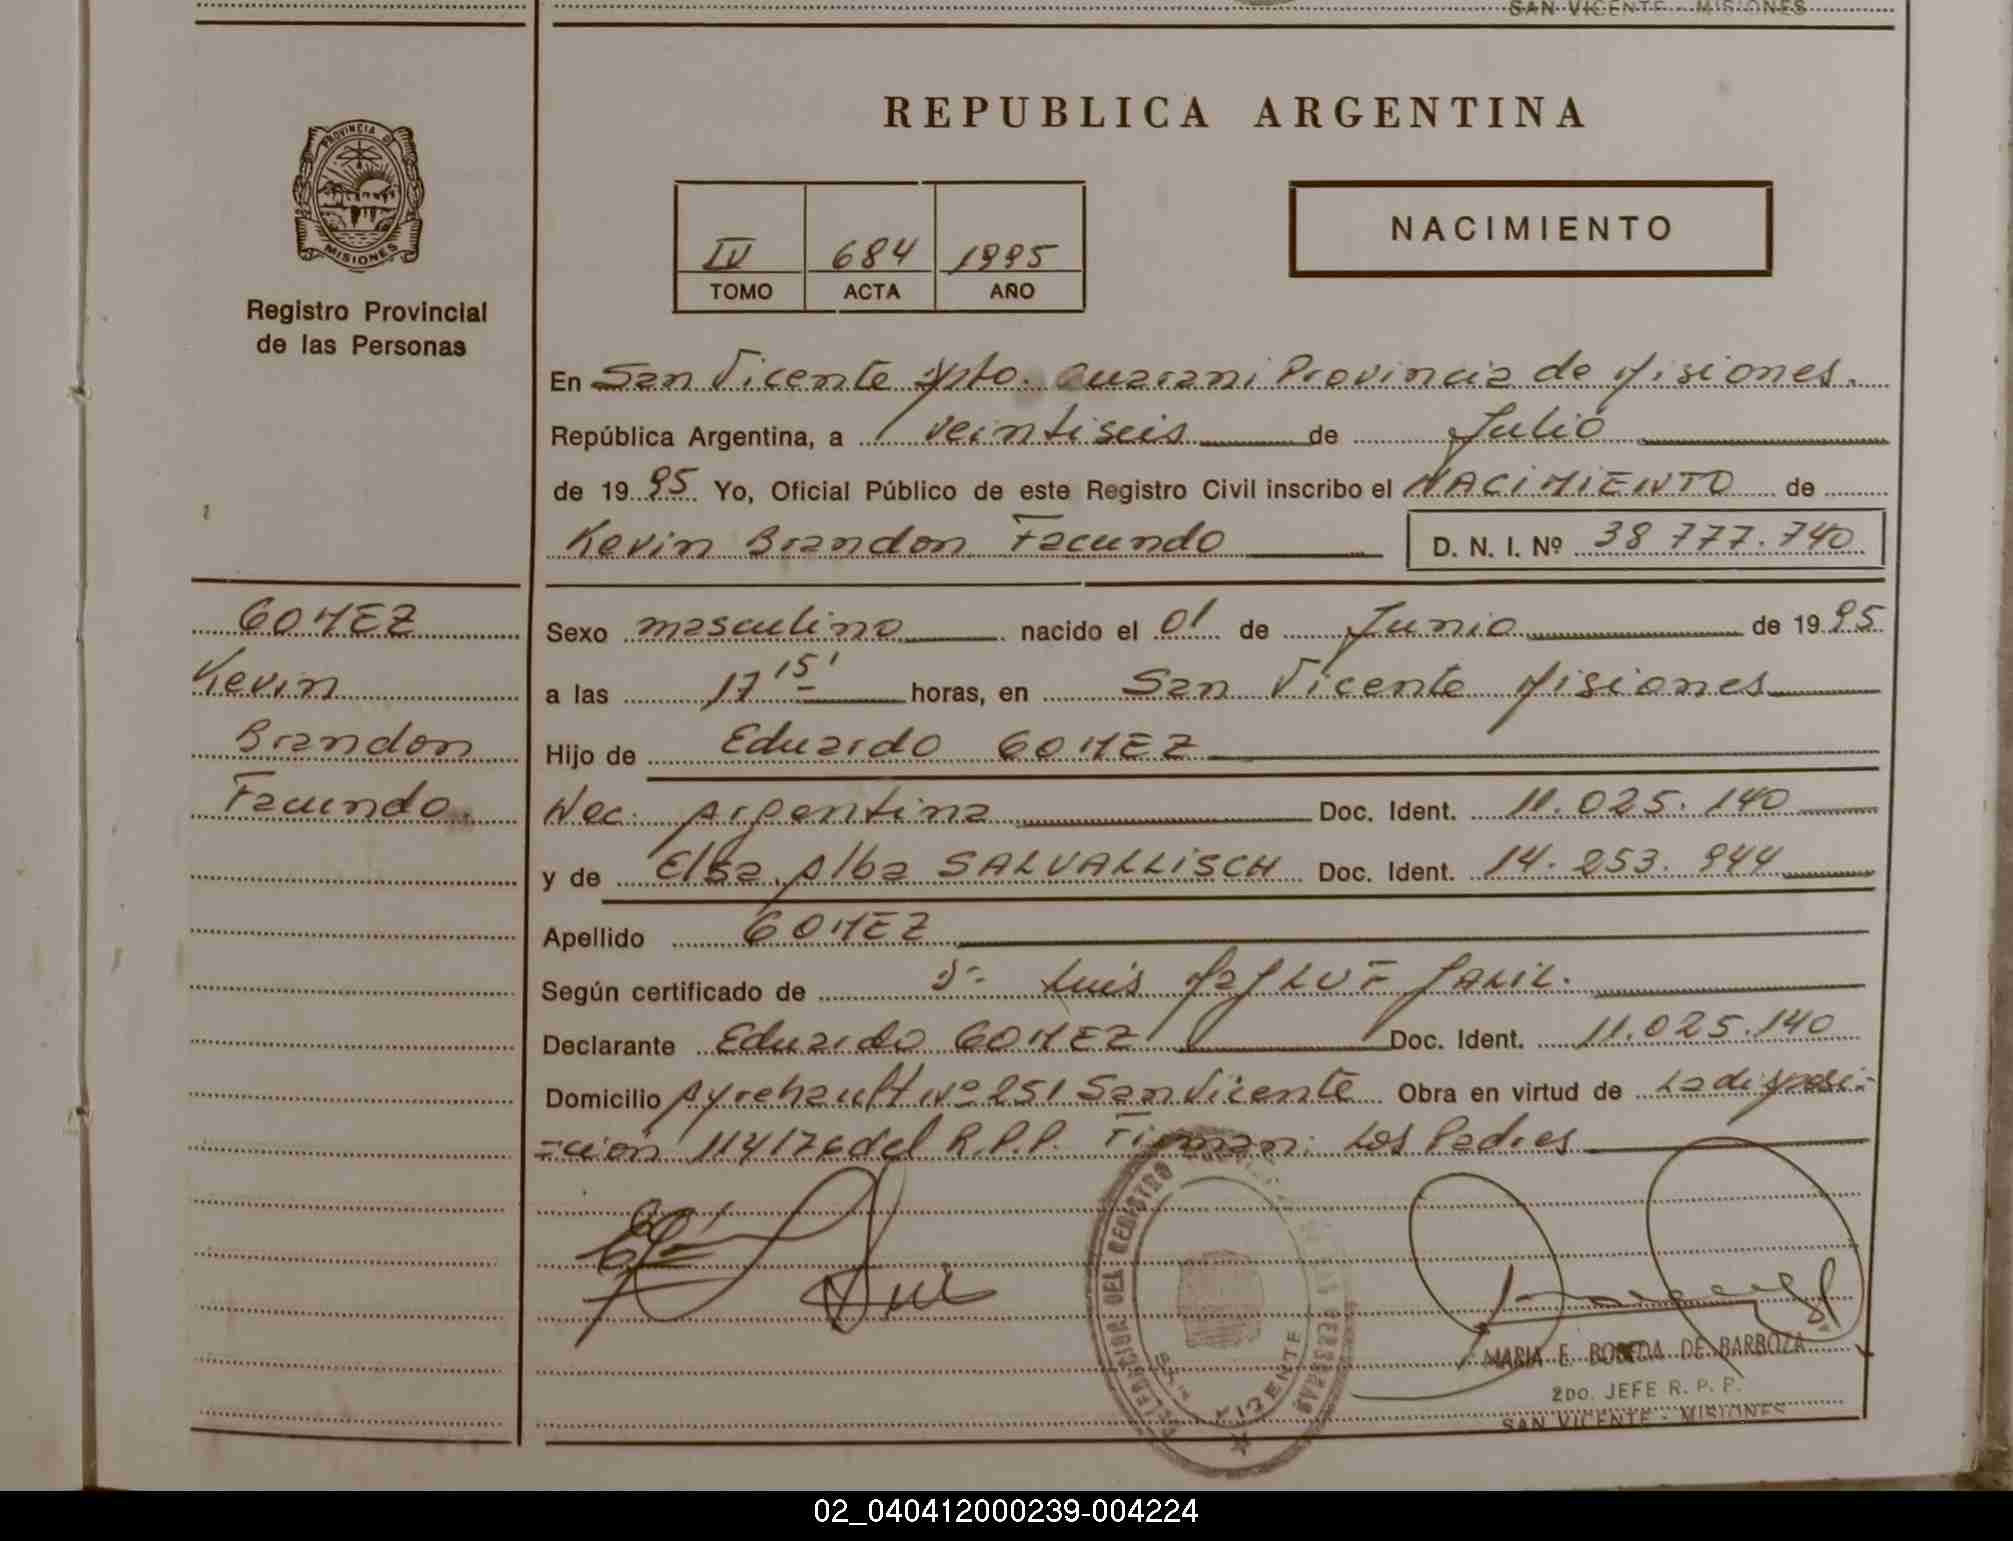 SAN VICENTE - MISIONES
REPUBLICA ARGENTINA
PROVINCIA D
MISIONES
Registro Provincial
de las Personas
IV 684 1995
TOMO ACTA AÑO
NACIMIENTO
En San Vicente Dpto. Guarani Provincia de Misiones.
República Argentina, a veintiseis de Julio
de 1995 Yo, Oficial Público de este Registro Civil inscribo el NACIMIENTO de
Kevin Brandon Facundo D. N. I. Nº 38 777.740
GOMEZ
Kevin
Brandon
Facundo
Sexo masculino nacido el 01 de Junio de 1995
a las 17 15' horas, en San Vicente Misiones
Hijo de Eduardo GOMEZ
Nac. Argentina Doc. Ident. 11.025.140
y de Elsa Alba SALVALLISCH Doc. Ident. 14.253.944
Apellido GOMEZ
Según certificado de Dr. Luis JALIL.
Declarante Eduardo GOMEZ Doc. Ident. 11.025.140
Domicilio Ayrehault Nº 251 San Vicente Obra en virtud de La disposi-
-ción 114/76 del R.P.P. Firman: Los Padres
DEL REGISTRO
PERSONAS
SAN VICENTE
MARIA E. BOBEDA DE BARBOZA
2DO. JEFE R. P. P.
SAN VICENTE - MISIONES
02_040412000239-004224